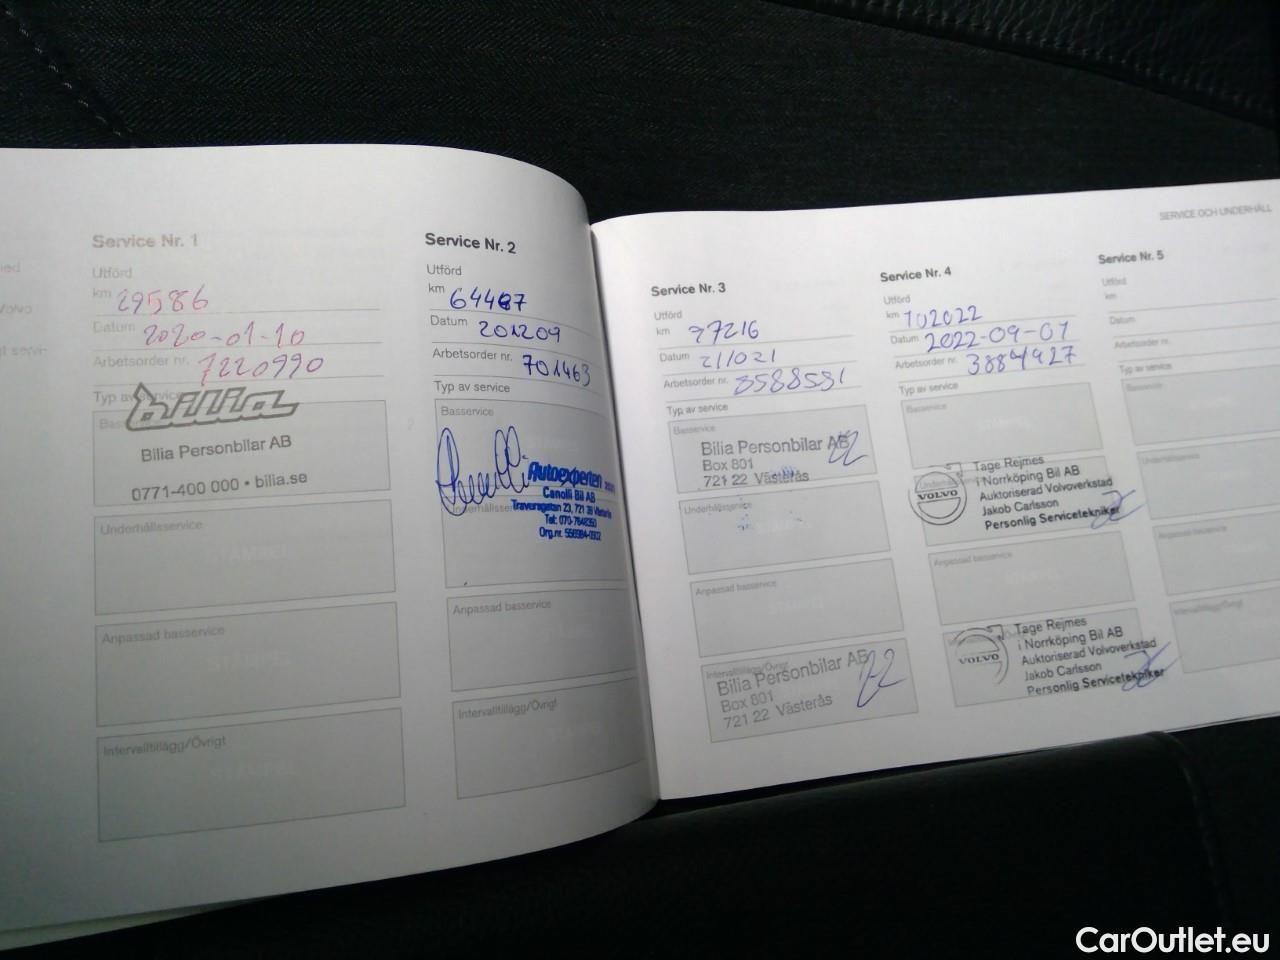 ned
Volvo
gt servi-
Service Nr. 1
Utförd
km 29586
Datum 2020-01-10
Arbetsorder nr. 7220990
Typ av service
bilia
Bilia Personbilar AB
0771-400 000 • bilia.se
Underhållsservice
STÄMPEL
Anpassad basservice
STÄMPEL
Intervalltillägg/Övrigt
STÄMPEL
Service Nr. 2
Utförd
km 64487
Datum 201209
Arbetsorder nr. 701463
Typ av service
Basservice
Autoexperten
Canolli Bil AB
Traversgatan 23, 721 39 Västerås
Tel: 070-7648350
Org.nr. 556984-0302
Underhållsservice
Anpassad basservice
Intervalltillägg/Övrigt
SERVICE OCH UNDERHÅLL
Service Nr. 3
Utförd
km 97216
Datum 211021
Arbetsorder nr. 3588581
Typ av service
Basservice
Bilia Personbilar AB
Box 801
721 22 Västerås
Underhållsservice
Anpassad basservice
Intervalltillägg/Övrigt
Bilia Personbilar AB
Box 801
721 22 Västerås
Service Nr. 4
Utförd
km 102022
Datum 2022-09-01
Arbetsorder nr. 3884427
Typ av service
Basservice
VOLVO
Tage Rejmes
i Norrköping Bil AB
Auktoriserad Volvoverkstad
Jakob Carlsson
Personlig Servicetekniker
Anpassad basservice
Intervalltillägg/Övrigt
VOLVO
Tage Rejmes
i Norrköping Bil AB
Auktoriserad Volvoverkstad
Jakob Carlsson
Personlig Servicetekniker
Service Nr. 5
Utförd
km
Datum
Arbetsorder nr.
Typ av service
Basservice
Underhållsservice
Anpassad basservice
Intervalltillägg/Övrigt
CarOutlet.eu